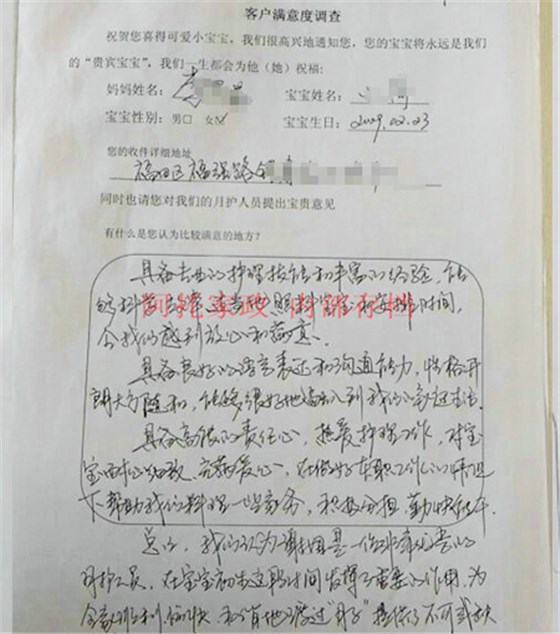 客户满意度调查
祝贺您喜得可爱小宝宝，我们很高兴地通知您，您的宝宝将永远是我们
的“贵宾宝宝”，我们一生都会为他（她）祝福：
妈妈姓名： 李 宝宝姓名：
宝宝性别： 男□ 女☑ 宝宝生日： 2009.02.23
您的收件详细地址
福田区福强路
同时也请您对我们的月护人员提出宝贵意见
有什么是您认为比较满意的地方？
具备专业的护理技能和丰富的经验，能
够科学 照料宝宝 安排时间，
令我们感到放心和满意。
阿姨家政 内部存档
具备良好的语言表达和沟通能力，性格开
朗大方随和，能够很好地融入到我们的家庭生活。
具备高很的责任心，热爱护理工作，对宝
宝耐心细致、充满爱心，在做好本职工作的情况
下帮助我们料理一些家务，积极分担，勤快能干。
总之，我们认为谢 是一位非常优秀的
月护人员，在宝宝初生这段时间发挥了重要的作用，为
全家顺利、愉快、 地度过“月子”提供了不可或缺